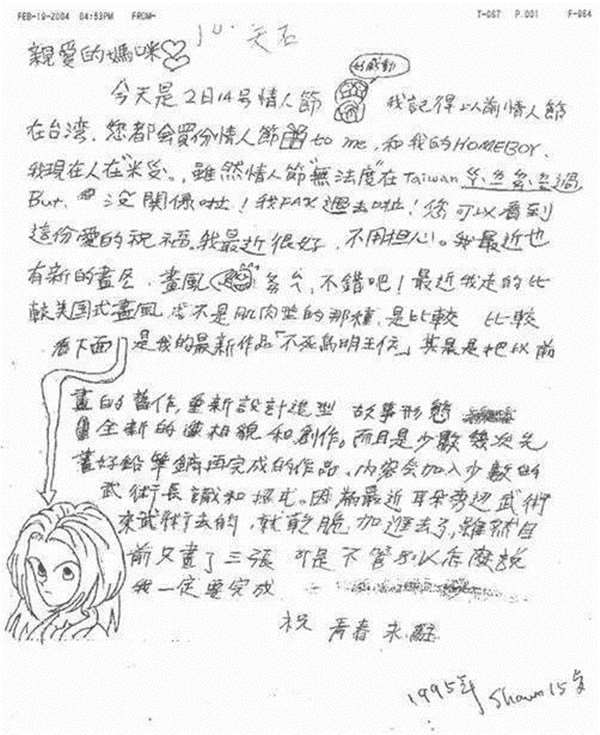 FEB-19-2004 04:53PM FROM- T-067 P.001 F-064
親愛的媽咪♡
好感動
今天是2日14号情人節 我記得以前情人節
在台湾，您都会買份情人節 to me，和我的HOMEBOY.
我現在人在"米"。雖然情人節"無法度"在Taiwan 過
But, 沒關係啦！我FAX過去啦！您可以看到
這份愛的祝福。我最近很好，不用担心。我最近也
有新的畫 ，畫風 多ㄅ，不錯吧！最近我走的比
較美国式畫風，不是肌肉 的那種，是比較 比較
看下面 是我的最新作品「不死鳥明王 」其是把以前
畫的舊作，重新設計造型 故事形態
全新的 相貌和創作。而且是少數幾次先
畫好鉛筆 再完成的作品，內容会加入少數的
武術 識和 。因為最近 武術
來武術去的，就乾脆加進去了，雖然目
前又畫了三張 可是不管 怎麼說
我一定要完成
祝 青春永駐
1995年 Shawn 15歲